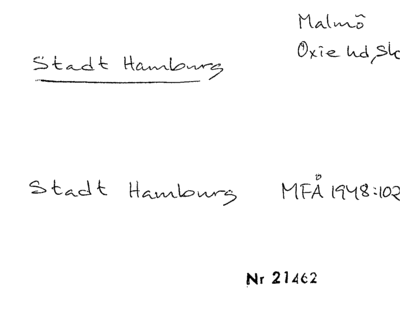 Malmö
Stadt Hamburg
Oxie hd, Sk
Stadt Hamburg MFÅ 1948:102
Nr 21462